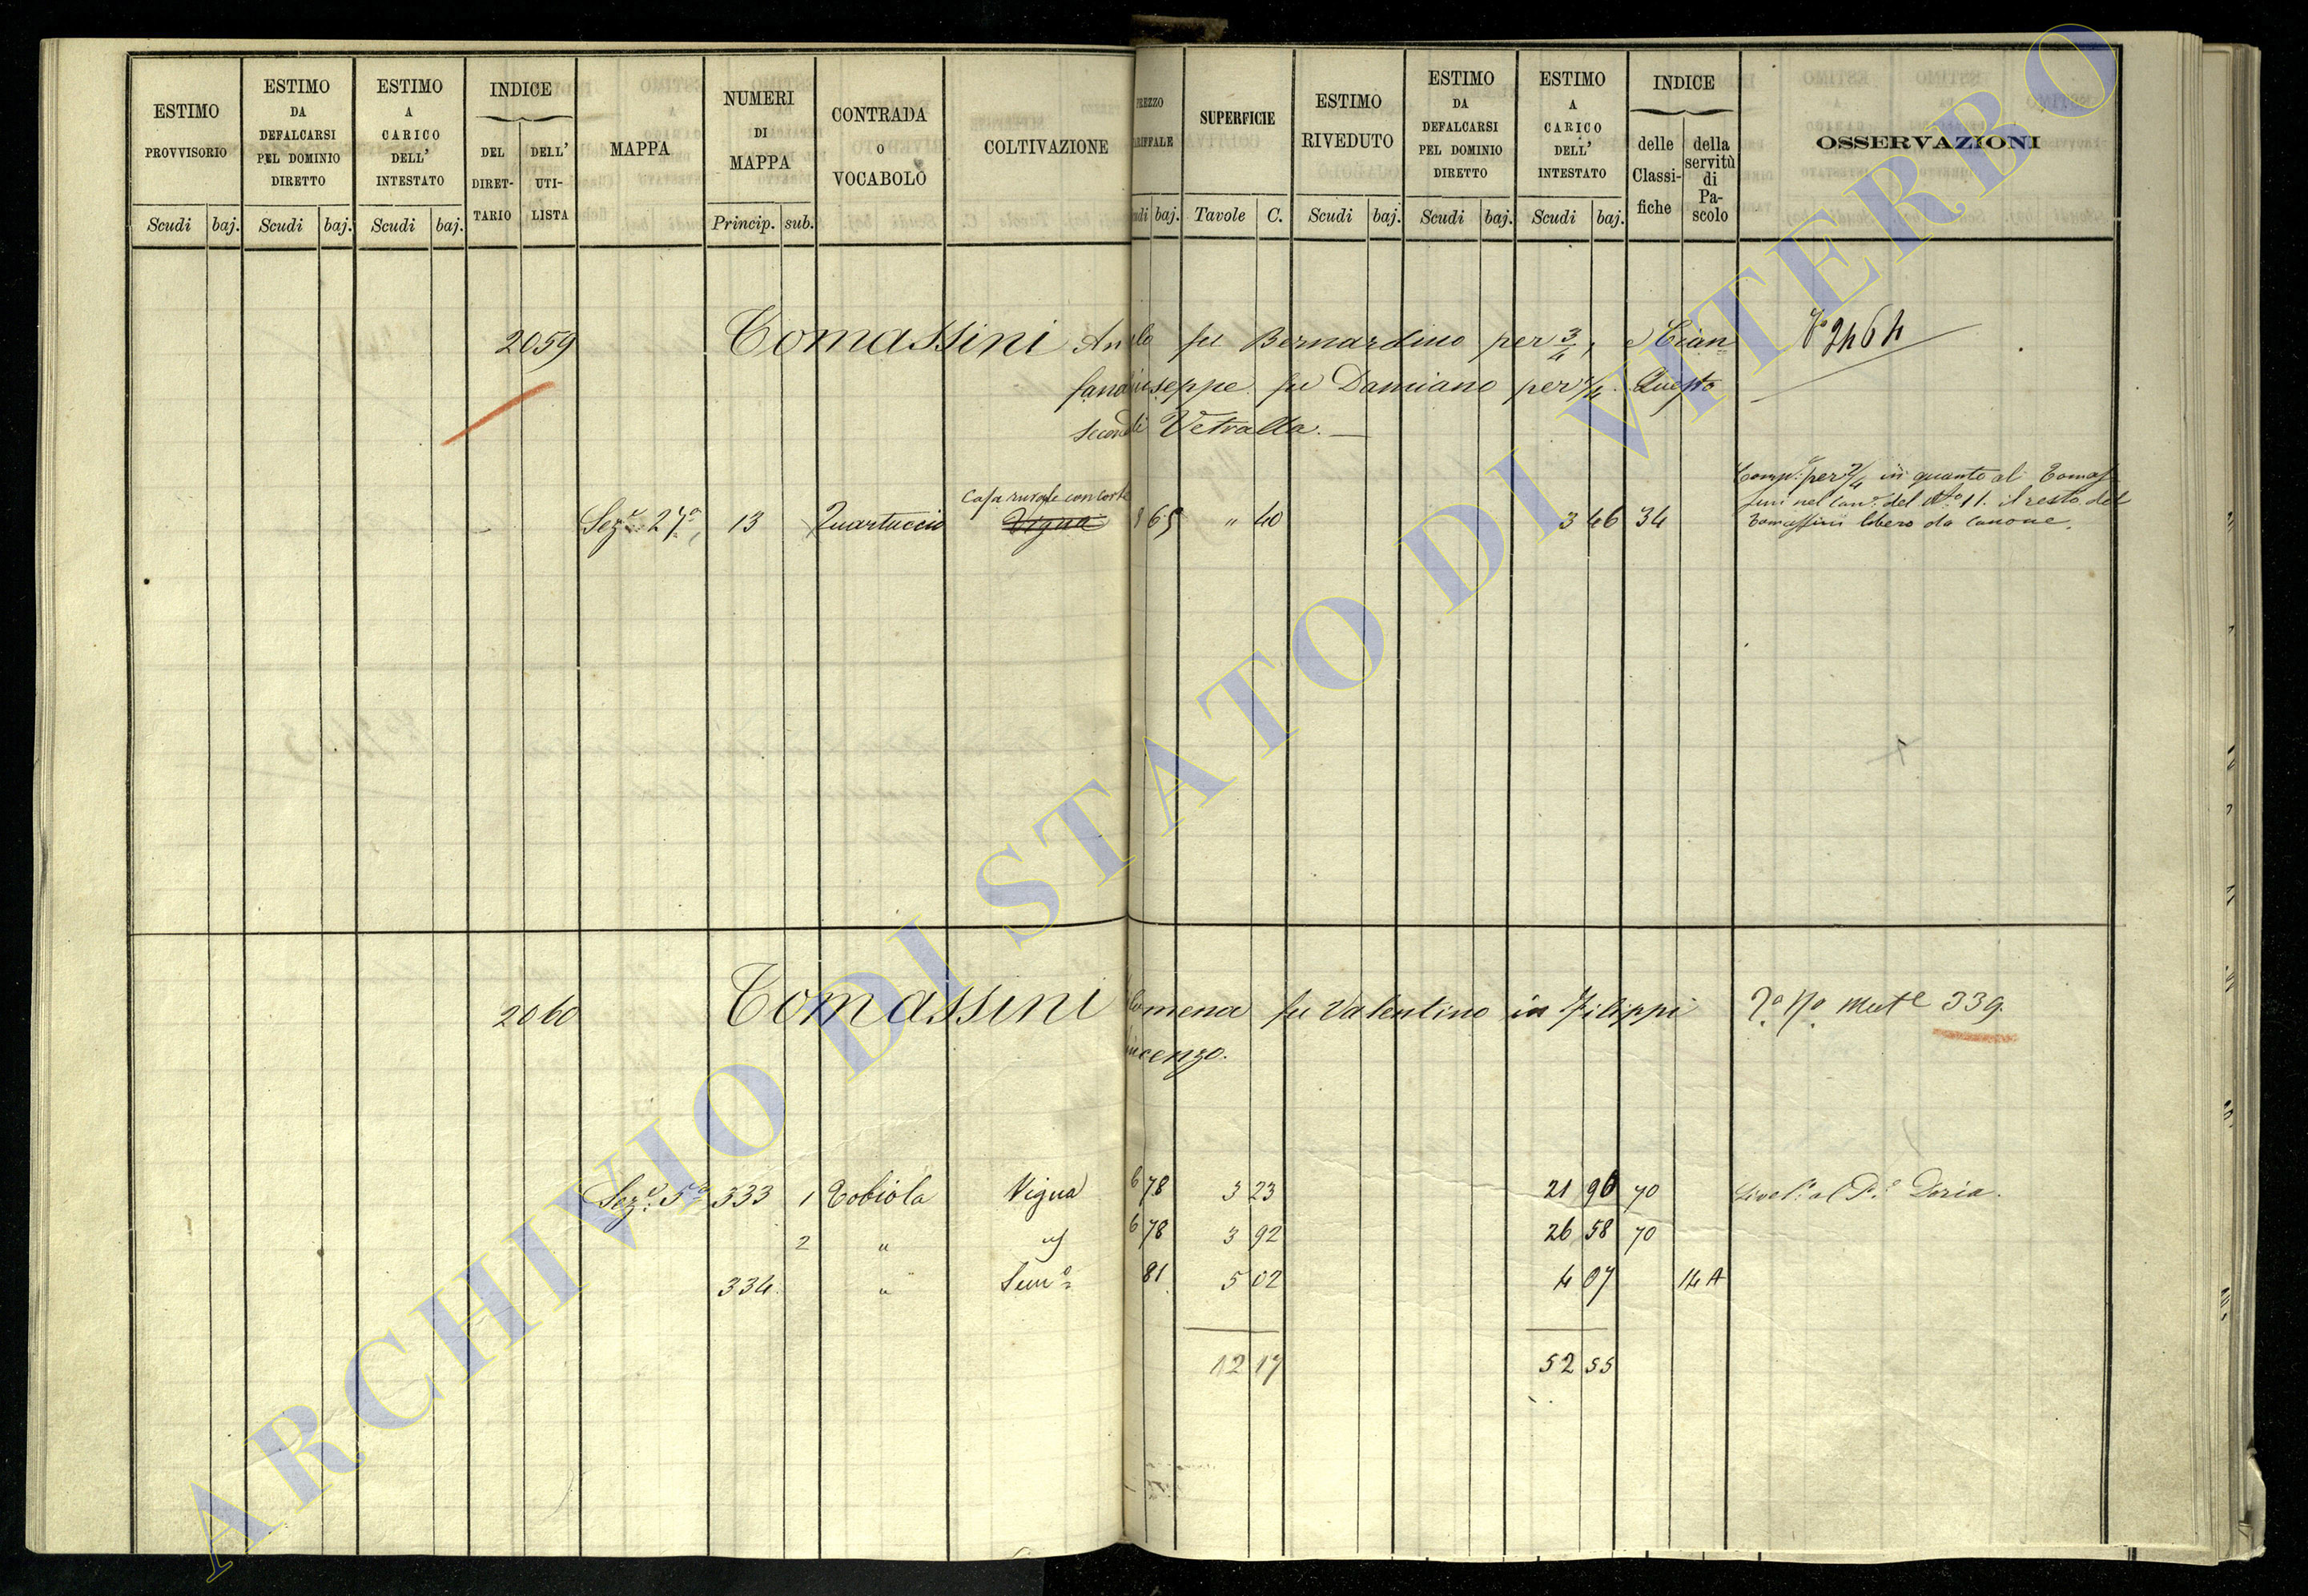 ESTIMO PROVVISORIO
ESTIMO DA DEFALCARSI PEL DOMINIO DIRETTO
ESTIMO A CARICO DELL' INTESTATO
INDICE
DEL DIRET-TARIO
DELL' UTI-LISTA
MAPPA
NUMERI DI MAPPA
CONTRADA O VOCABOLO
COLTIVAZIONE
SUPERFICIE
ESTIMO RIVEDUTO
ESTIMO DA DEFALCARSI PEL DOMINIO DIRETTO
ESTIMO A CARICO DELL' INTESTATO
INDICE
delle Classi-fiche
della servitù di Pa-scolo
OSSERVAZIONI
Scudi baj. Scudi baj. Scudi baj. Princip. sub. baj. Tavole C. Scudi baj. Scudi baj. Scudi baj.
2059 Tomassini fu Bernardino per 3/4, e Cian 2464
seppe fu Damiano per 1/4. Questo
Vetralla.
Casa rurale con corte
Sez.e 27a 13 Quartuccio Vigna 65 " 40 3 46 34
per 3/4 in quanto al Tomas
sini nel can.e del No 11. il resto del
Tomassini libero da canone.
2060 Tomassini omena fu Valentino in Filippi Mut.e 339.
incenzo.
Sez.e 5a 333 1 Tobiola Vigna 6 78 3 23 21 96 70 Doria.
2 " 6 78 3 92 26 58 70
334. " Sem.o 81 5 02 4 07 14A
12 17 52 55
ARCHIVIO DI STATO DI VITERBO